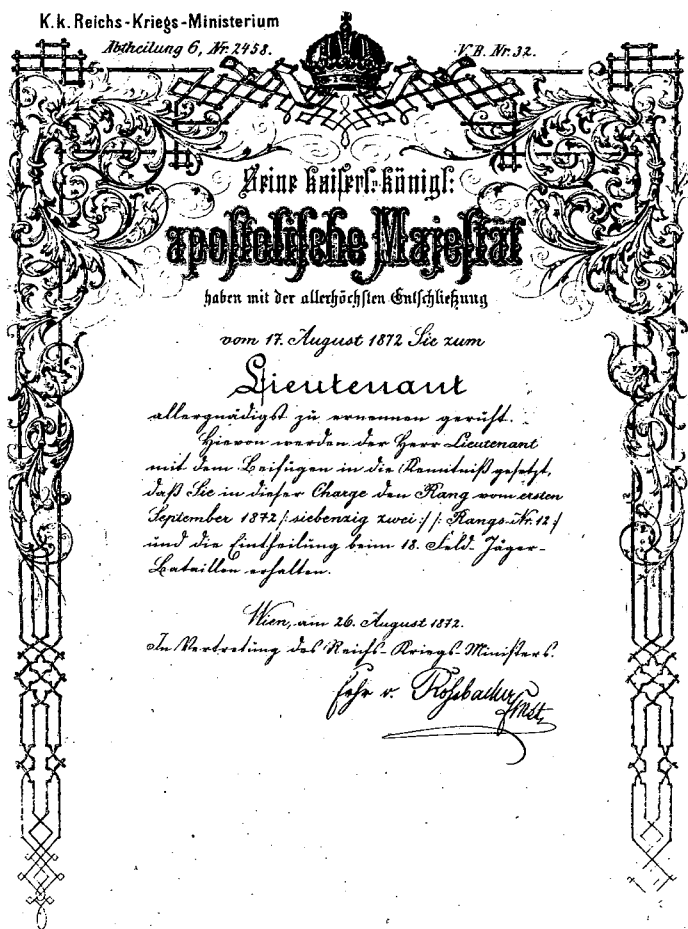 K.k. Reichs-Kriegs-Ministerium
Abtheilung 6, Nr. 2458. V.B. Nr. 32.
Seine kaiserl: königl:
apostolische Majestät
haben mit der allerhöchsten Entschließung
vom 17. August 1872 Sie zum
Lieutenant
allergnädigst zu ernennen geruht.
Hievon werden der Herr Lieutenant
mit dem Beifügen in die Kenntniß gesetzt,
daß Sie in dieser Charge den Rang vom ersten
September 1872 /: siebenzig zwei :/ /: Rangs-Nr. 12 :/
und die Eintheilung beim 18. Feld-Jäger-
Bataillon erhalten.
Wien, am 26. August 1872.
In Vertretung des Reichs-Kriegs-Ministers.
v. Rossbacher